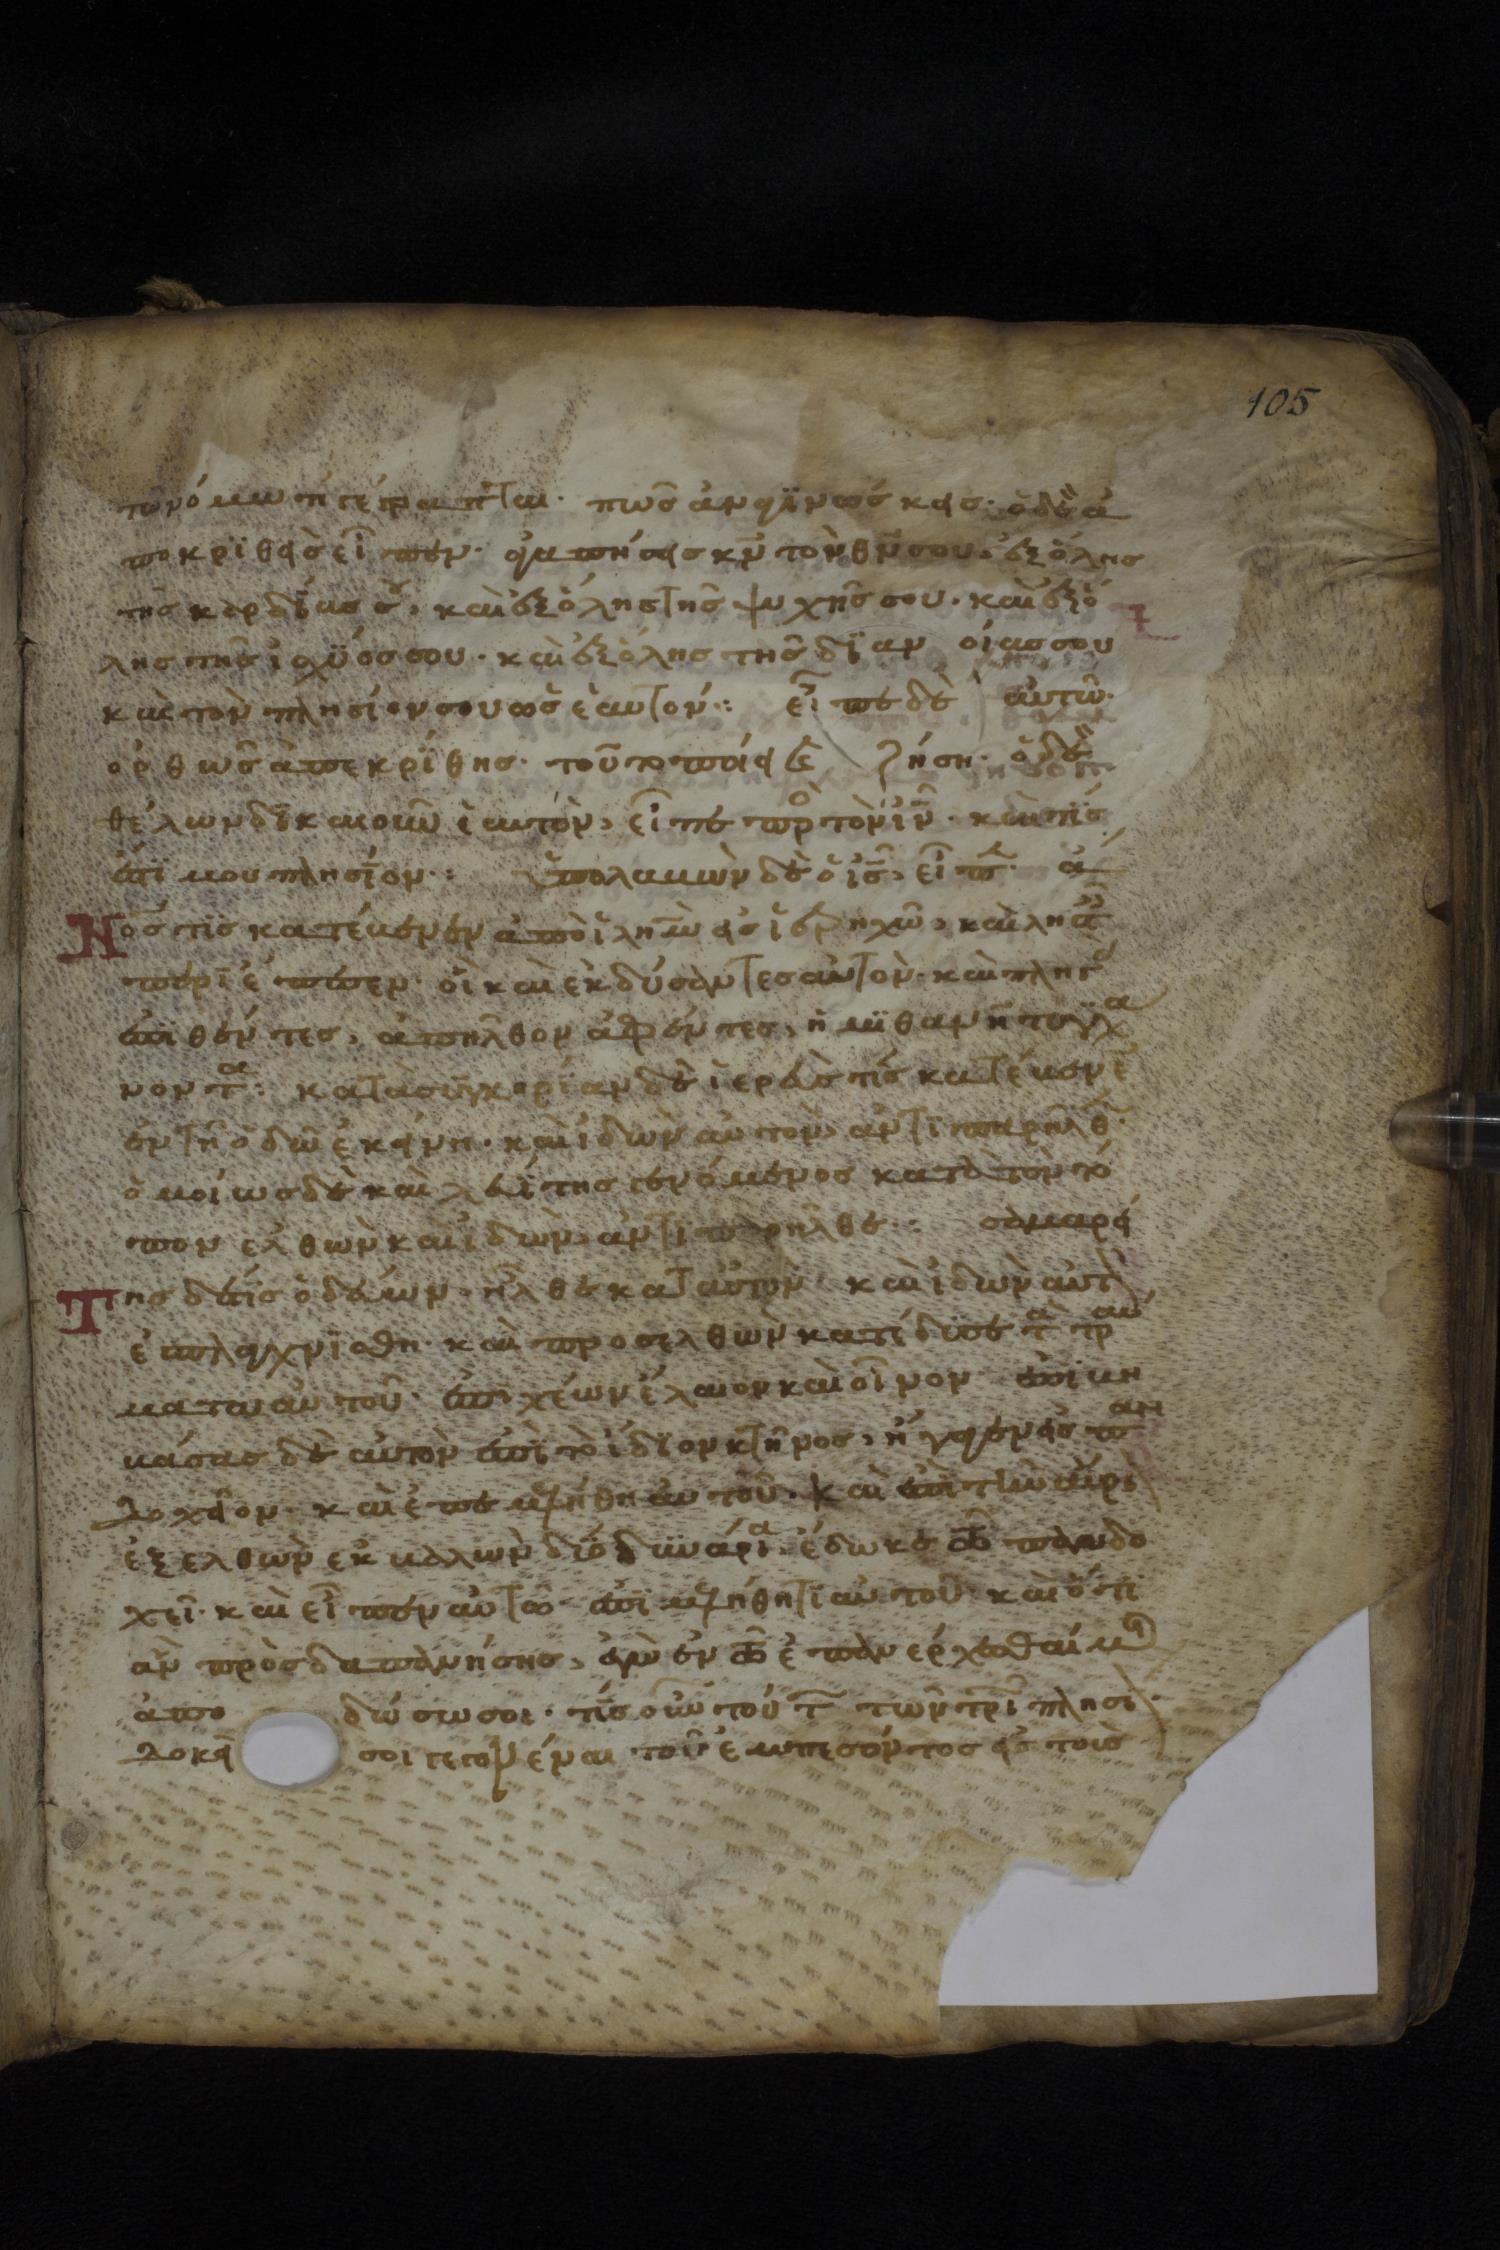 105
τω νόμω τί γέγραπται· πῶς ἀναγϊνώσκεις· ὁ δὲ ἀ
ποκρϊθεὶς εἶπεν· ἀγαπήσεις κν τὸν θν σου· ἐξ ὅλης
τῆς καρδίας σου· καὶ ἐξ ὅλης τῆς ψυχῆς σου· καὶ ἐξ ὅ
λης τῆς ἰσχϋος σου· καὶ ἐξ ὅλης τῆς δϊανοίας σου
καὶ τὸν πλησίον σου ὡς ἑαυτόν·: εἶπε δὲ αὐτῶ·
ὀρθῶς ἀπεκρίθης· τοῦτο ποίει ζήση· ὁ δὲ
θέλων δϊκαιοῦν ἑαυτὸν, εἶπε πρὸ τὸν ιν· καὶ τίς
ἐστί μου πλησΐον·: ὑπολαμὼν δὲ ὁ ις, εἶπε· α
νος τϊς κατέμενεν ἀπὸ ιλημ εἰς ἱερηχῶ, καὶ λησταῖς
περϊέπεσεν· οἳ καὶ ἐκδύσαντες αὐτὸν· καὶ πληγὰς
ἐπιθέντες, ἀπῆλθον ἀφέντες, ἡμϊθανῆ τυγχα
νοντα: κατὰ συγκυρίαν δὲ ἱερεὺς τίς κατέμενε
ἐν τῆ ὁδῶ ἐκείνη· καὶ ἰδὼν αὐτὸν, ἀντϊπαρῆλθ
ὁμοίως δὲ καὶ λευΐτης γενόμενος κατὰ τὸν τό
πον ἐλθὼν καὶ ἰδὼν, ἀντϊπαρῆλθε·: σαμαρεί
Της δέ τις ὁδεύων, ἦλθε κατ αὐτὸν· καὶ ἰδὼν αὐτὸ
ἐσπλαγχνϊσθη· καὶ προσελθὼν κατέδϋσε τὰ τραύ
ματα αὐτοῦ· ἐπιχέων ἔλαιον καὶ οἶνον· ἐπϊβη
βάσας δὲ αὐτὸν ἐπὶ τὸ ἴδϊον κτῆνος, ἤγαγεν εἰς παν
δοχεῖον· καὶ ἐπεμελήθη αὐτοῦ· καὶ ἐπὶ τὴν αὔριο
ἐξελθὼν ἐκβαλὼν δύο δϊνάρια, ἔδωκε τῶ πανδο
χεῖ· καὶ εἶπεν αὐτῶ· ἐπϊμελήθητϊ αὐτοῦ· καὶ ὅ τϊ
ἂν πρὸς δαπανήσης, ἐγὼ ἐν τῶ ἐπανέρχεσθαί με
ἀποδώσω σοι· τίς οὖν τούτ τῶν τριῶ πλησι
δοκεῖ σοι γεγονέναι τοῦ ἐμπεσόντος εἰς τοὺς